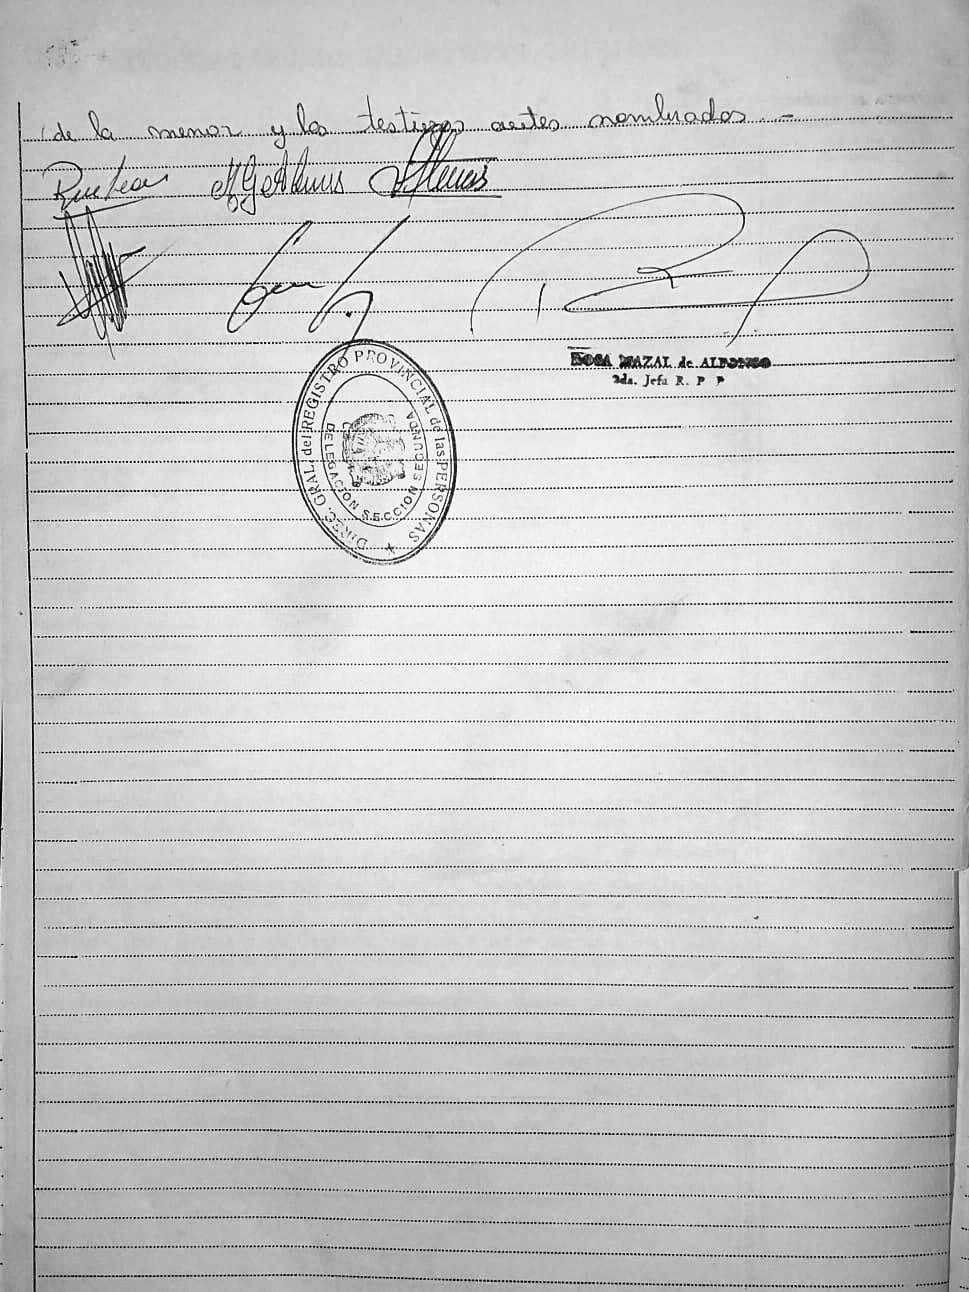 de la menor y los testigos antes nombrados.-
ROSA MAZAL de ALFONSO
2da. Jefa R. P P
DIREC. GRAL. del REGISTRO PROVINCIAL de las PERSONAS
DELEGACION SECCION SEGUNDA